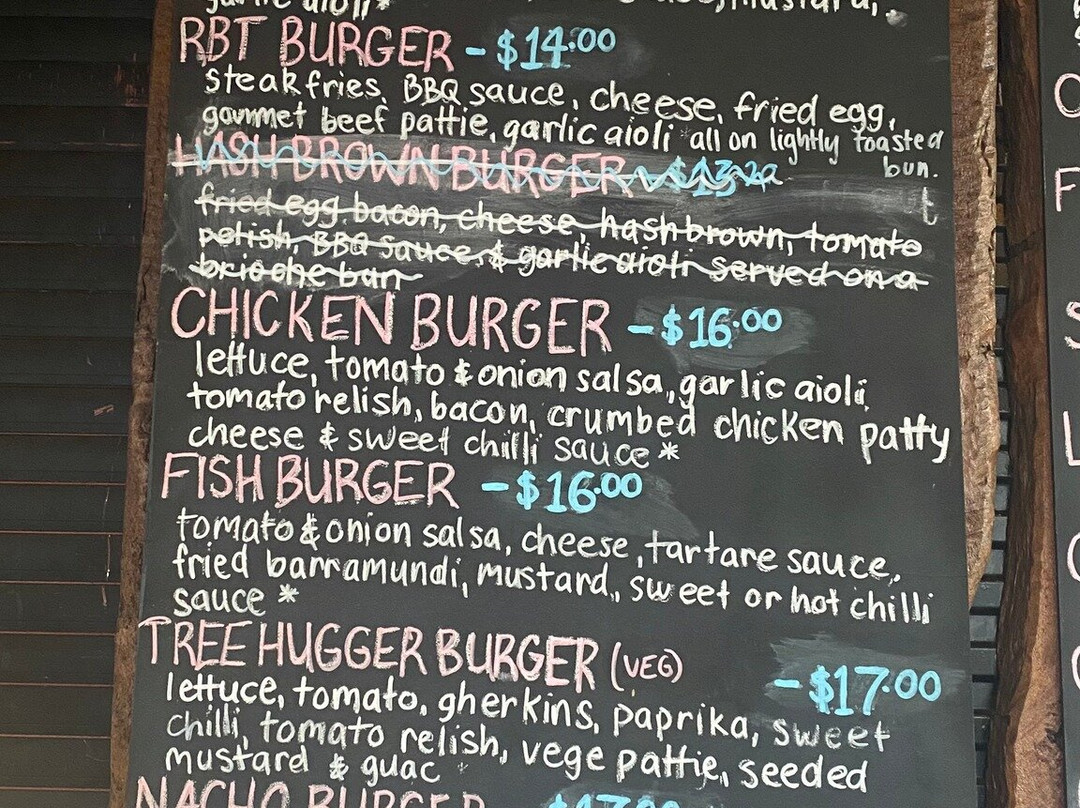 garlic aioli*
mustard,
RBT BURGER - $14.00
steak fries, BBQ sauce, cheese, fried egg,
gourmet beef pattie, garlic aioli *all on lightly toasted
bun.
HASH BROWN BURGER
fried egg bacon, cheese, hashbrown, tomato
relish, BBQ Sauce, & garlic aioli served on a
brioche bun
CHICKEN BURGER - $16.00
lettuce, tomato & onion salsa, garlic aioli,
tomato relish, bacon, crumbed chicken patty
cheese & sweet chilli sauce *
FISH BURGER - $16.00
tomato & onion salsa, cheese, tartare sauce,
fried barramundi, mustard, sweet or hot chilli
sauce *
TREE HUGGER BURGER (VEG) - $17.00
lettuce, tomato, gherkins, paprika, sweet
chilli, tomato relish, vege pattie, seeded
mustard & guac *
NACHO BURGER $17.00